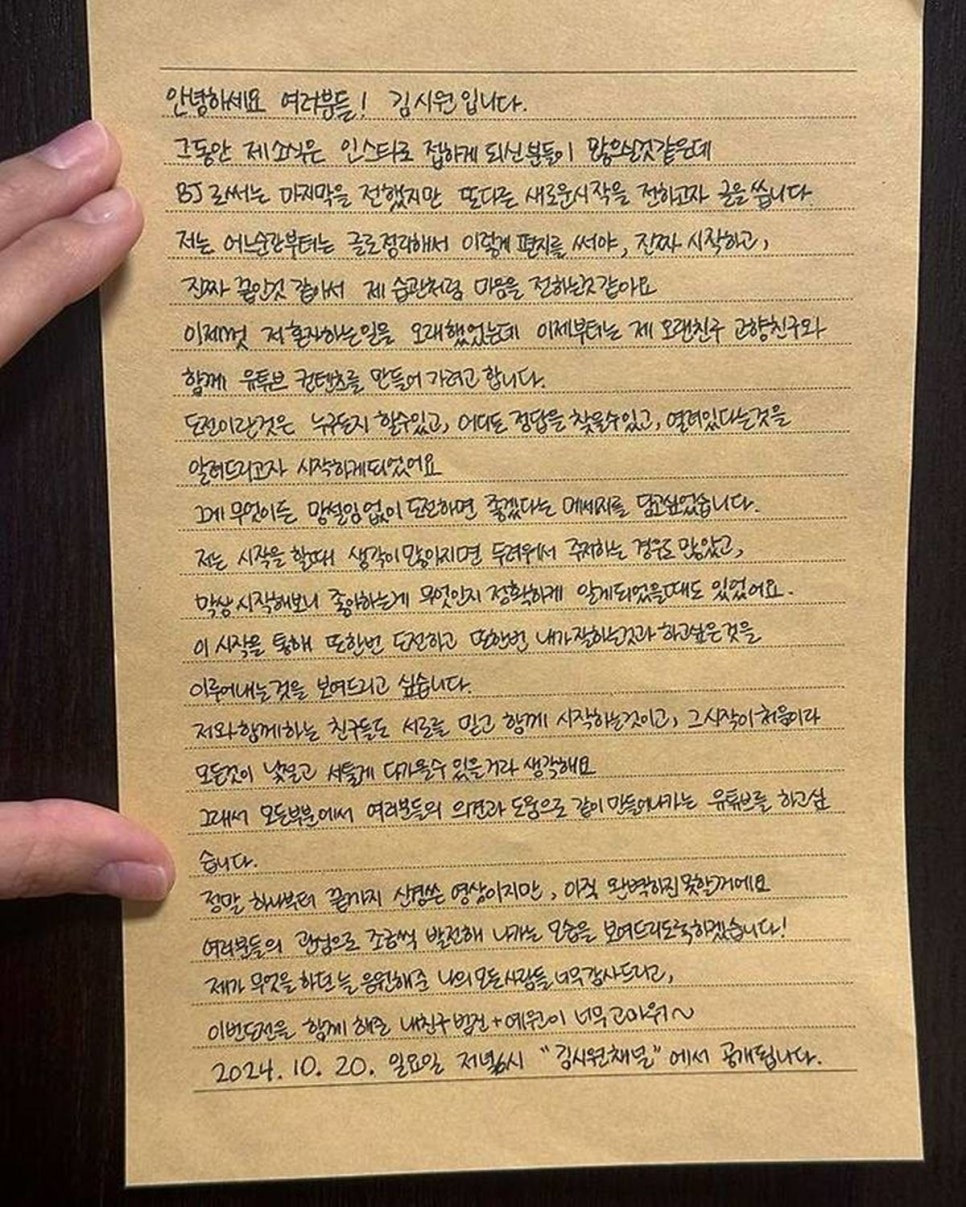 안녕하세요 여러분들! 김시원입니다.
그동안 제 소식은 인스타로 접하게 되신분들이 많으실것같은데
BJ로써는 마지막을 전했지만 또다른 새로운시작을 전하고자 글을 씁니다.
저는 어느순간부터는 글로정리해서 이렇게 편지를 써야, 진짜 시작하고,
진짜 끝인것 같아서 제 습관처럼 마음을 전하는것같아요
이제껏 저혼자하는일을 오래했었는데 이제부터는 제 오랜친구 고향친구와
함께 유튜브 컨텐츠를 만들어 가려고 합니다.
도전이란것은 누구든지 할수있고, 어디든 정답을 찾을수있고, 열려있다는것을
알려드리고자 시작하게되었어요
그게 무엇이든 망설임없이 도전하면 좋겠다는 메세지를 담고싶었습니다.
저는 시작을 할때 생각이많아지면 두려워서 주저하는 경우도 많았고,
막상시작해보니 좋아하는게 무엇인지 정확하게 알게되었을때도 있었어요.
이 시작을 통해 또한번 도전하고 또한번 내가잘하는것과 하고싶은것을
이루어내는것을 보여드리고 싶습니다.
저와함께하는 친구들도 서로를 믿고 함께 시작하는것이고, 그시작이처음이라
모든것이 낯설고 서툴게 다가올수 있을거라 생각해요
그래서 모든부분에서 여러분들의 의견과 도움으로 같이만들어나가는 유튜브를 하고싶
습니다.
정말 하나부터 끝까지 신경쓴 영상이지만, 아직 완벽하진못할거에요
여러분들의 관심으로 조금씩 발전해 나가는 모습을 보여드리도록하겠습니다!
제가 무엇을 하던 늘 응원해준 나의모든사람들 너무감사드리고,
이번도전을 함께 해준 내친구범진+예원이 너무고마워~
2024. 10. 20. 일요일 저녁6시 "김시원채널"에서 공개됩니다.